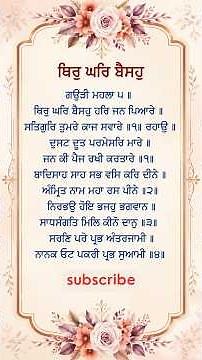 ਥਿਰੁ ਘਰਿ ਬੈਸਹੁ
ਗਉੜੀ ਮਹਲਾ ੫ ॥
ਥਿਰੁ ਘਰਿ ਬੈਸਹੁ ਹਰਿ ਜਨ ਪਿਆਰੇ ॥
ਸਤਿਗੁਰਿ ਤੁਮਰੇ ਕਾਜ ਸਵਾਰੇ ॥੧॥ ਰਹਾਉ ॥
ਦੁਸਟ ਦੂਤ ਪਰਮੇਸਰਿ ਮਾਰੇ ॥
ਜਨ ਕੀ ਪੈਜ ਰਖੀ ਕਰਤਾਰੇ ॥੧॥
ਬਾਦਿਸਾਹ ਸਾਹ ਸਭ ਵਸਿ ਕਰਿ ਦੀਨੇ ॥
ਅੰਮ੍ਰਿਤ ਨਾਮ ਮਹਾ ਰਸ ਪੀਨੇ ॥੨॥
ਨਿਰਭਉ ਹੋਇ ਭਜਹੁ ਭਗਵਾਨ ॥
ਸਾਧਸੰਗਤਿ ਮਿਲਿ ਕੀਨੋ ਦਾਨੁ ॥੩॥
ਸਰਣਿ ਪਰੇ ਪ੍ਰਭ ਅੰਤਰਜਾਮੀ ॥
ਨਾਨਕ ਓਟ ਪਕਰੀ ਪ੍ਰਭ ਸੁਆਮੀ ॥੪॥
subscribe